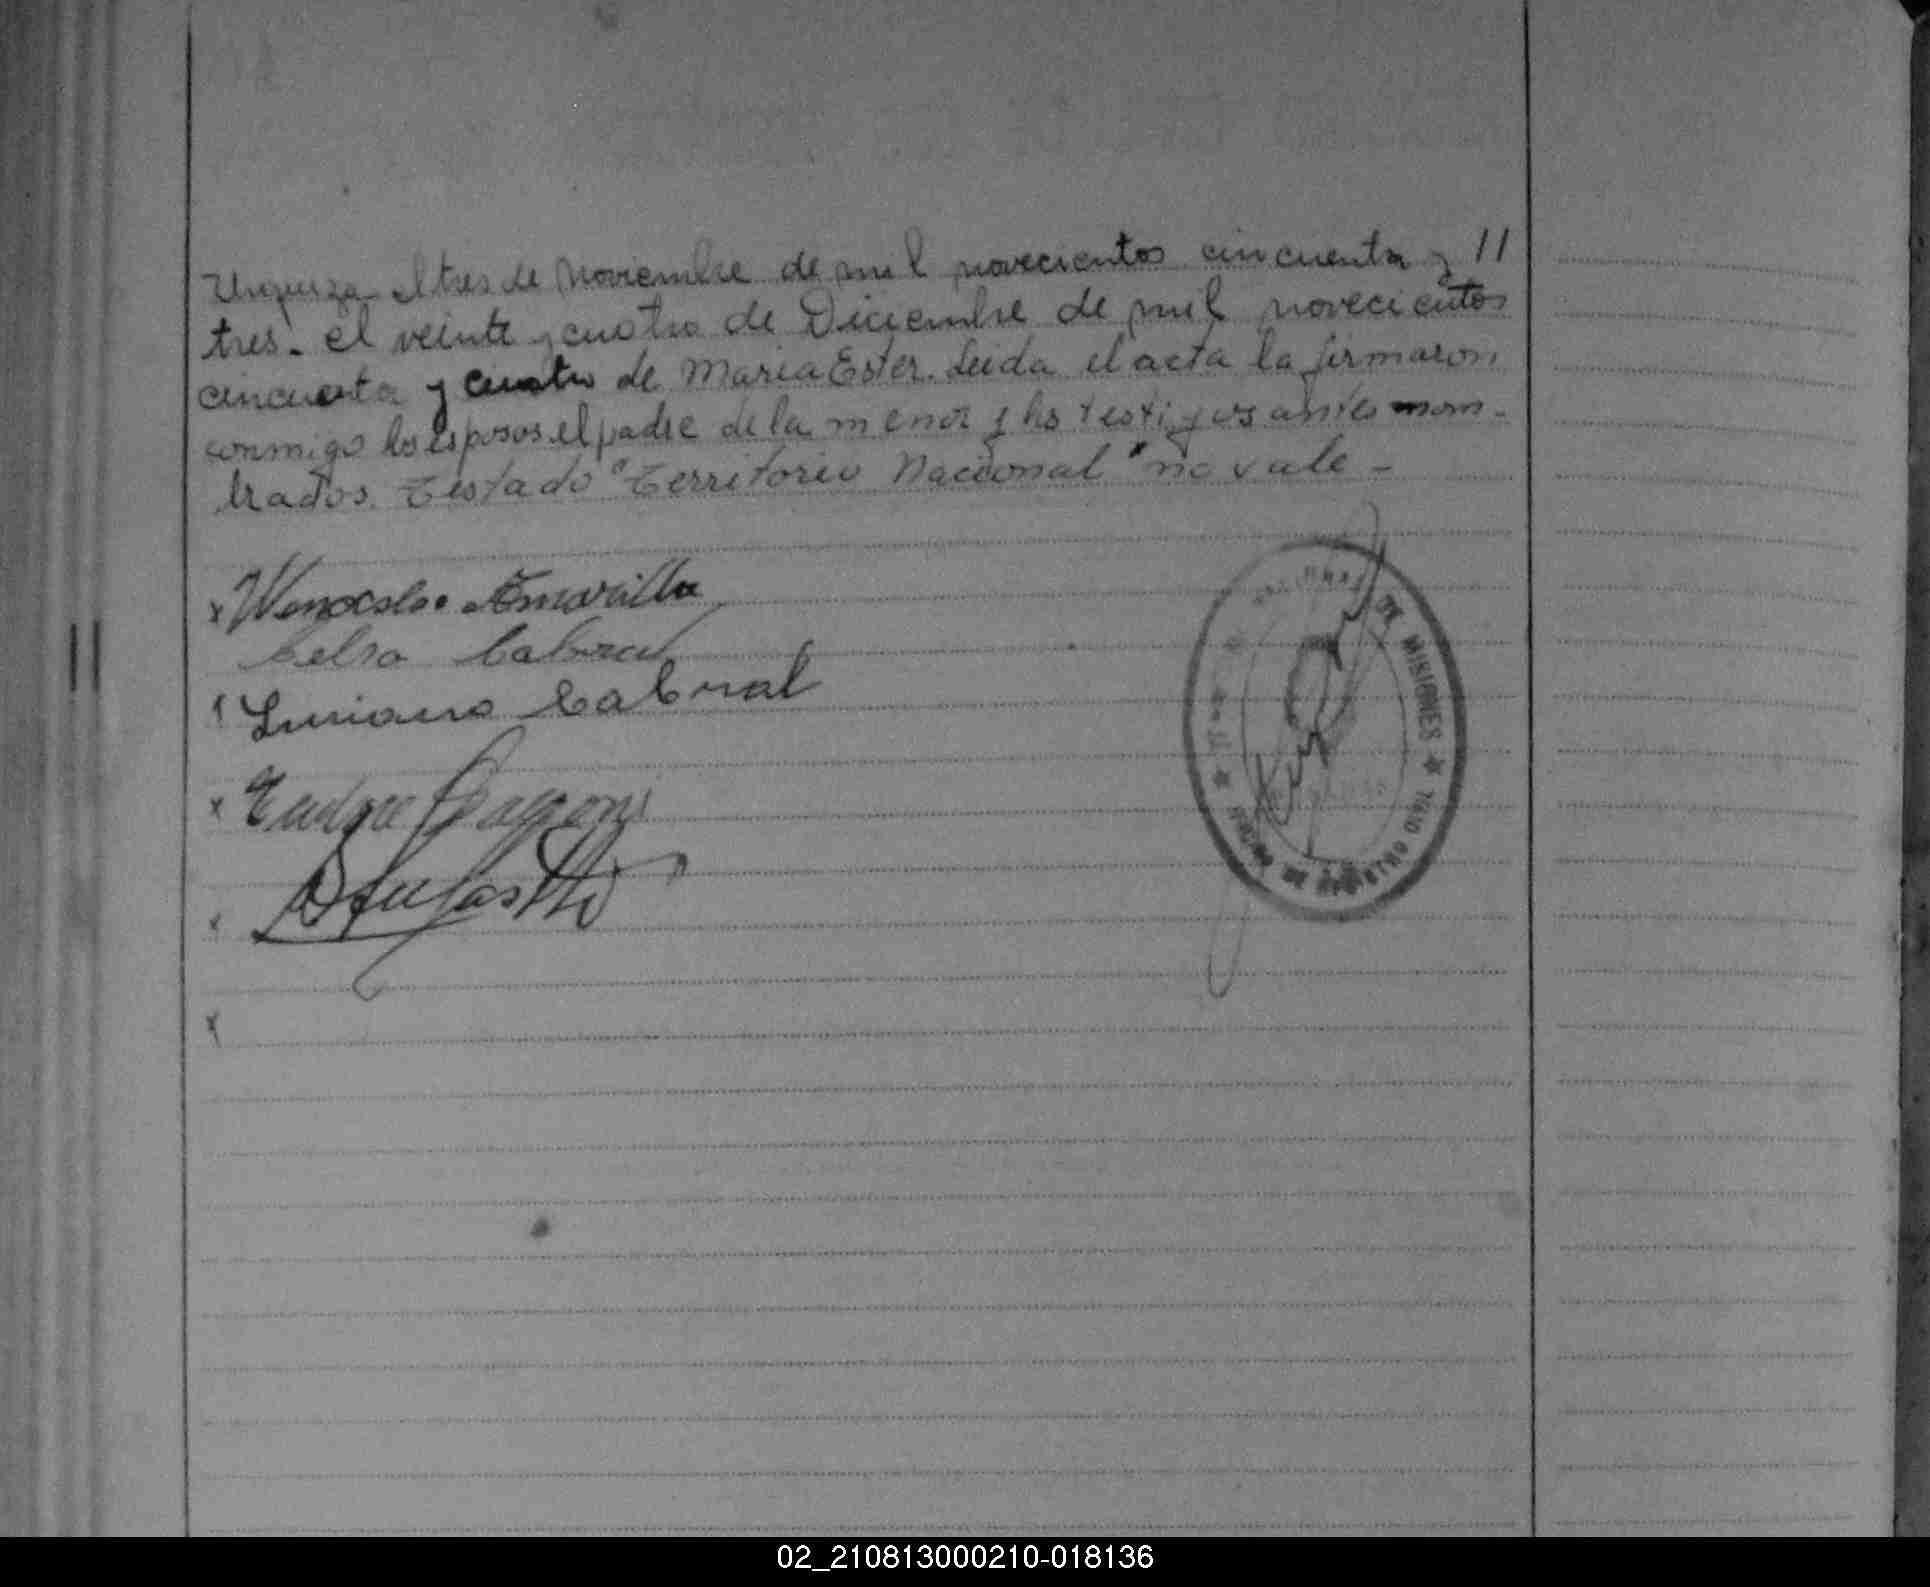 Urquiza el tres de Noviembre de mil novecientos cincuenta y //
tres. el veinte y cuatro de Diciembre de mil novecientos
cincuenta y cuatro de Maria Ester. Leida el acta la firmaron
conmigo los esposos, el padre de la menor y los testigos antes nom-
brados. Testado "Territorio Nacional" no vale -
x Wenceslao Amarilla
Celso Cabral
Luciano Cabral
x
x
x
DE MISIONES ★ ★ DE REGISTRO CIVIL
02_210813000210-018136